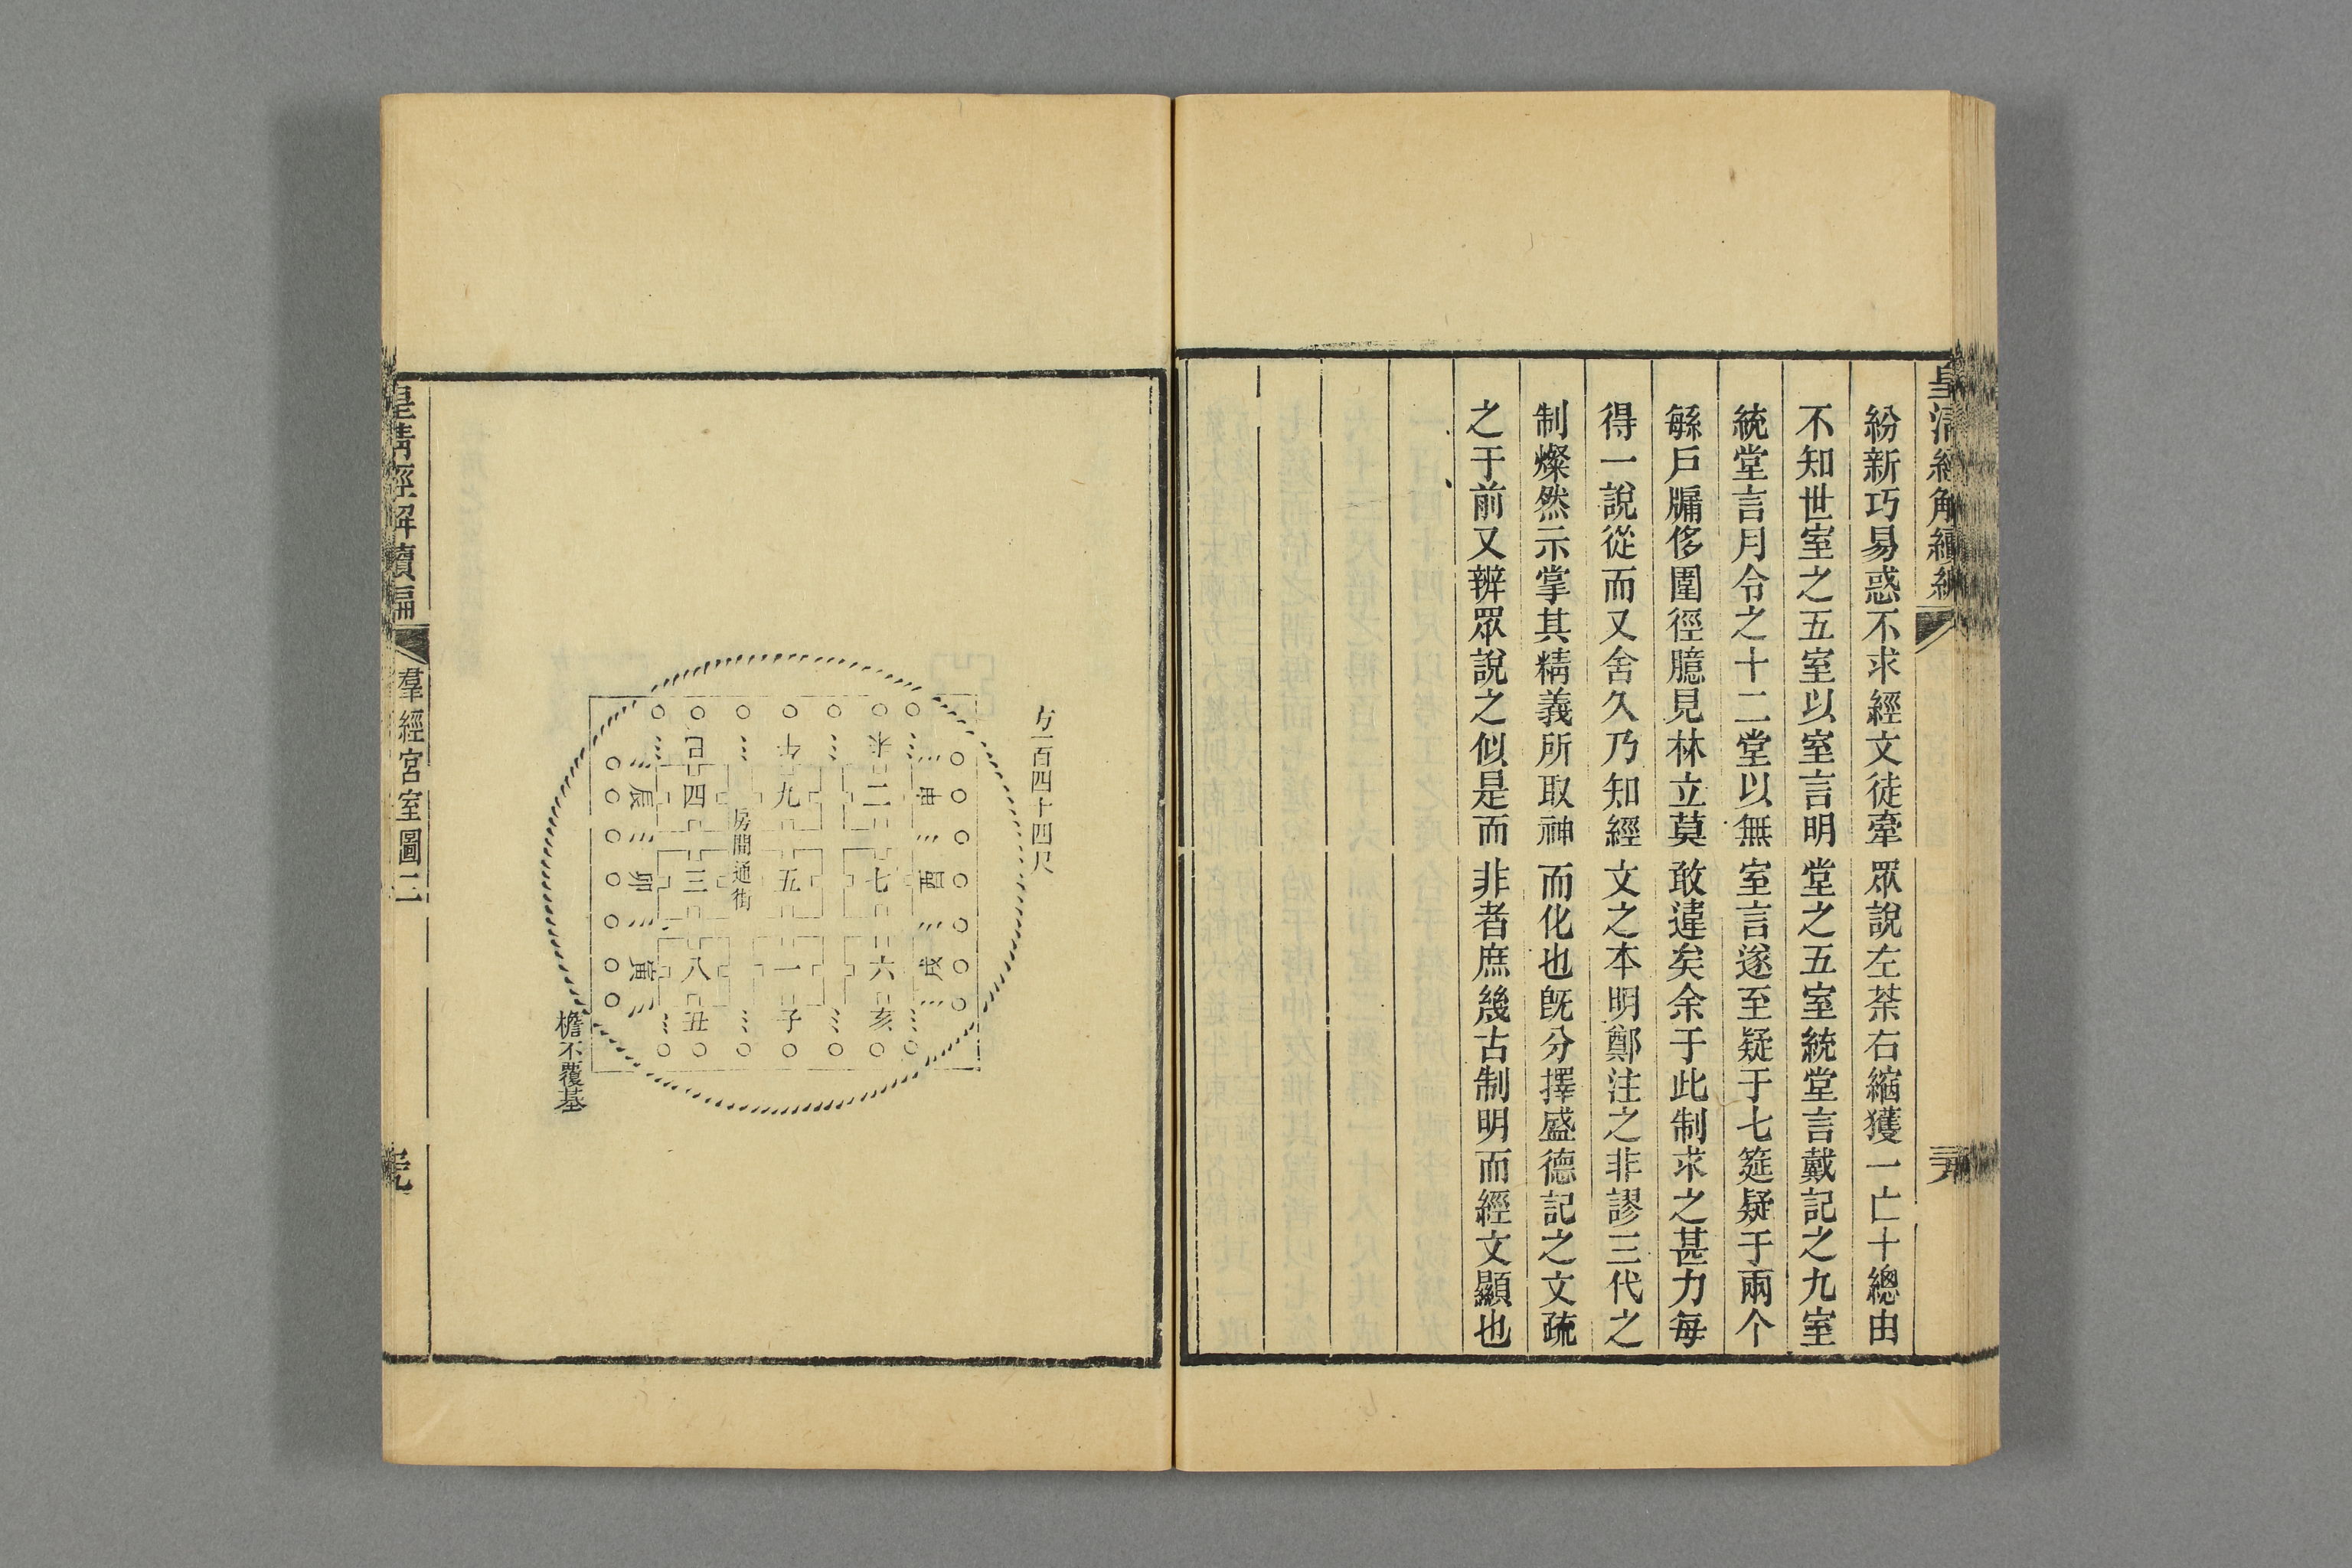 皇清經解續編
紛新巧易惑不求經文徒牽眾說左茶右縮獲一亡十總由
不知世室之五室以室言明堂之五室統堂言戴記之九室
統堂言月令之十二堂以無室言遂至疑于七筵疑于兩个
緐戶牖侈圍徑臆見林立莫敢違矣余于此制求之甚力每
得一說從而又舍久乃知經文之本明鄭注之非謬三代之
制燦然示掌其精義所取神而化也旣分擇盛德記之文疏
之于前又辨眾說之似是而非者庶幾古制明而經文顯也
方一百四十四尺
未午巳
申二九四辰
房間通街
酉七五三卯
戌六一八寅
亥子丑
檐不覆基
皇清經解續編
羣經宮室圖二